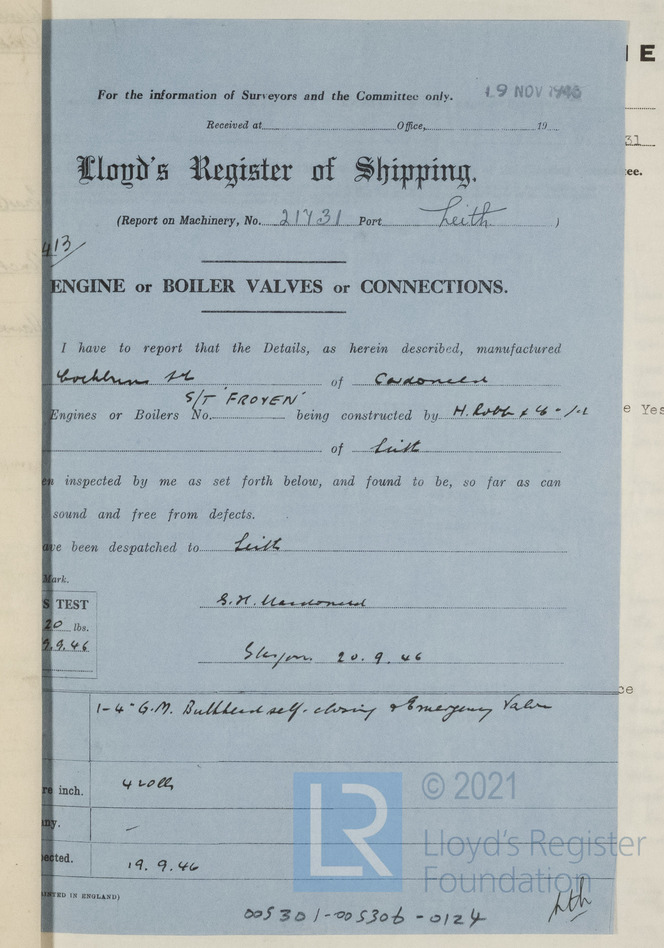 For the information of Surveyors and the Committee only.
19 NOV 1946
Received at Office, 19
Lloyd's Register of Shipping.
(Report on Machinery, No. 21731 Port Leith )
413
ENGINE or BOILER VALVES or CONNECTIONS.
I have to report that the Details, as herein described, manufactured
Cockburns Ld of Cardonald
S/T 'FROYEN'
Engines or Boilers No. being constructed by H. Robb & Co
of Leith
en inspected by me as set forth below, and found to be, so far as can
sound and free from defects.
ave been despatched to Leith
Mark.
S TEST
20 lbs.
9.9.46
G.H. Macdonald
Glasgow 20.9.46
1-4" G.M. Bulkhead self-closing & Emergency Valve
re inch.
4 20 lbs
any.
–
pected.
19.9.46
RINTED IN ENGLAND)
005301-005306-0124
© 2021
LR
Lloyd's Register
Foundation
E
31
ee.
e Yes
ce